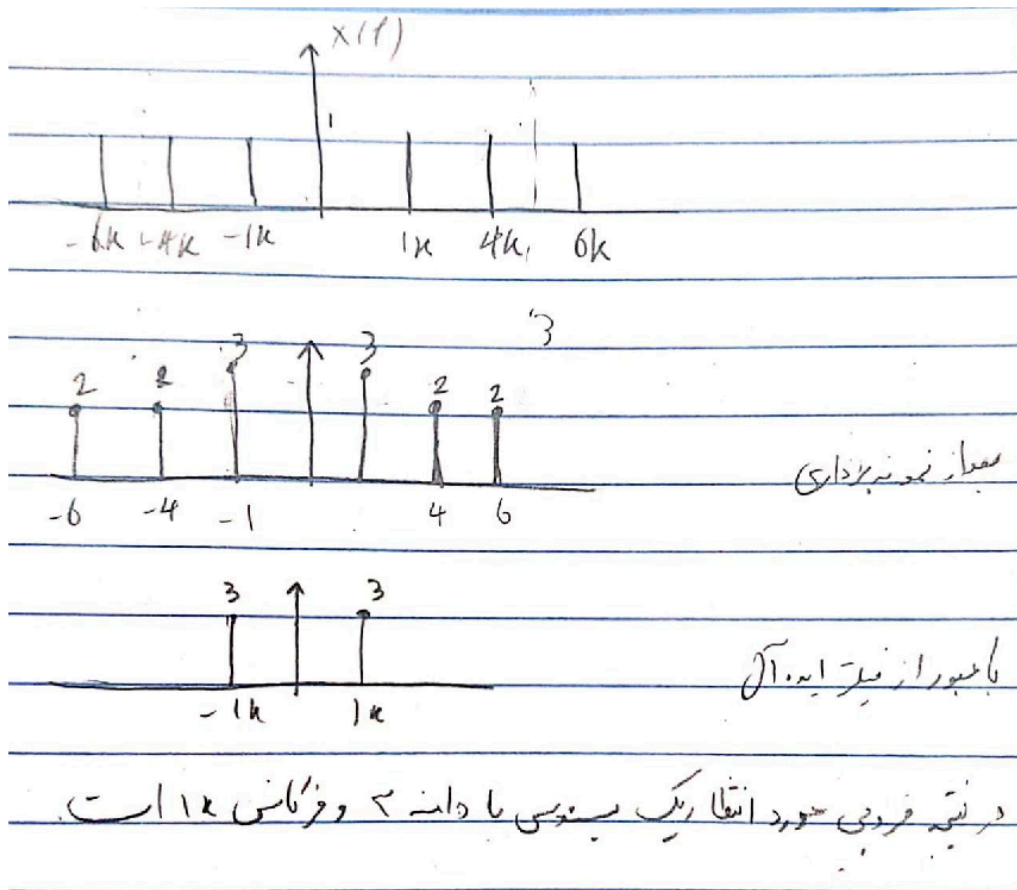 X(f)
1
-6k -4k -1k 1k 4k 6k
3
2 2 3 3 2 2
بعد از نمونه برداری
-6 -4 -1 4 6
3 3
با عبور از فیلتر ایده آل
-1k 1k
در نتیجه خروجی مورد انتظار یک سینوسی با دامنه ۳ و فرکانس 1k است.